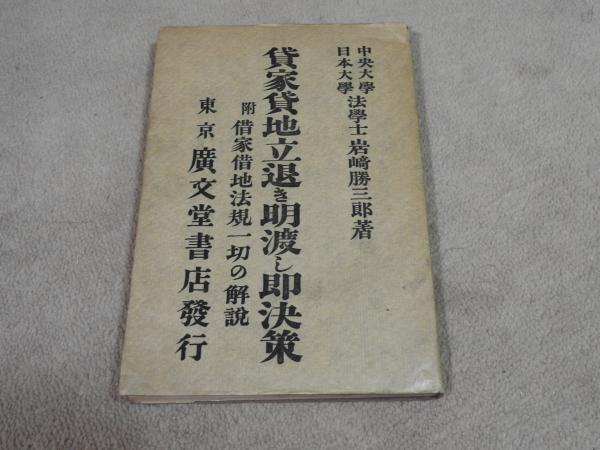 中央大學
日本大學
法學士 岩﨑勝三郎著
貸家貸地立退き明渡し即決策
附 借家借地法規一切の解說
東京 廣文堂書店發行